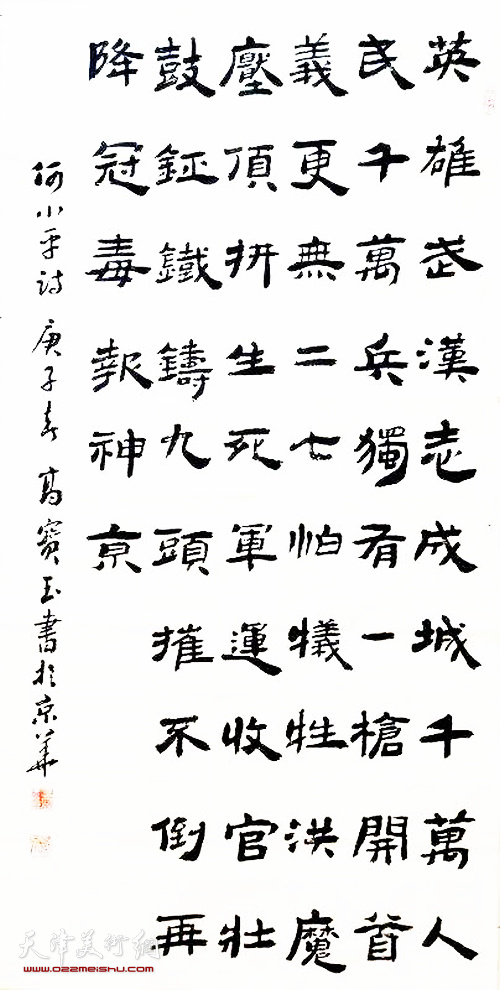 英雄武漢志成城千萬人
民千萬兵獨有一槍開首
義更無二七怕犧牲洪魔
壓頂拼生死軍運收官壯
鼓鉦鐵鑄九頭摧不倒再
降冠毒報神京
何小平詩 庚子春 高寶玉書於京華
天津美術網
www.022meishu.com